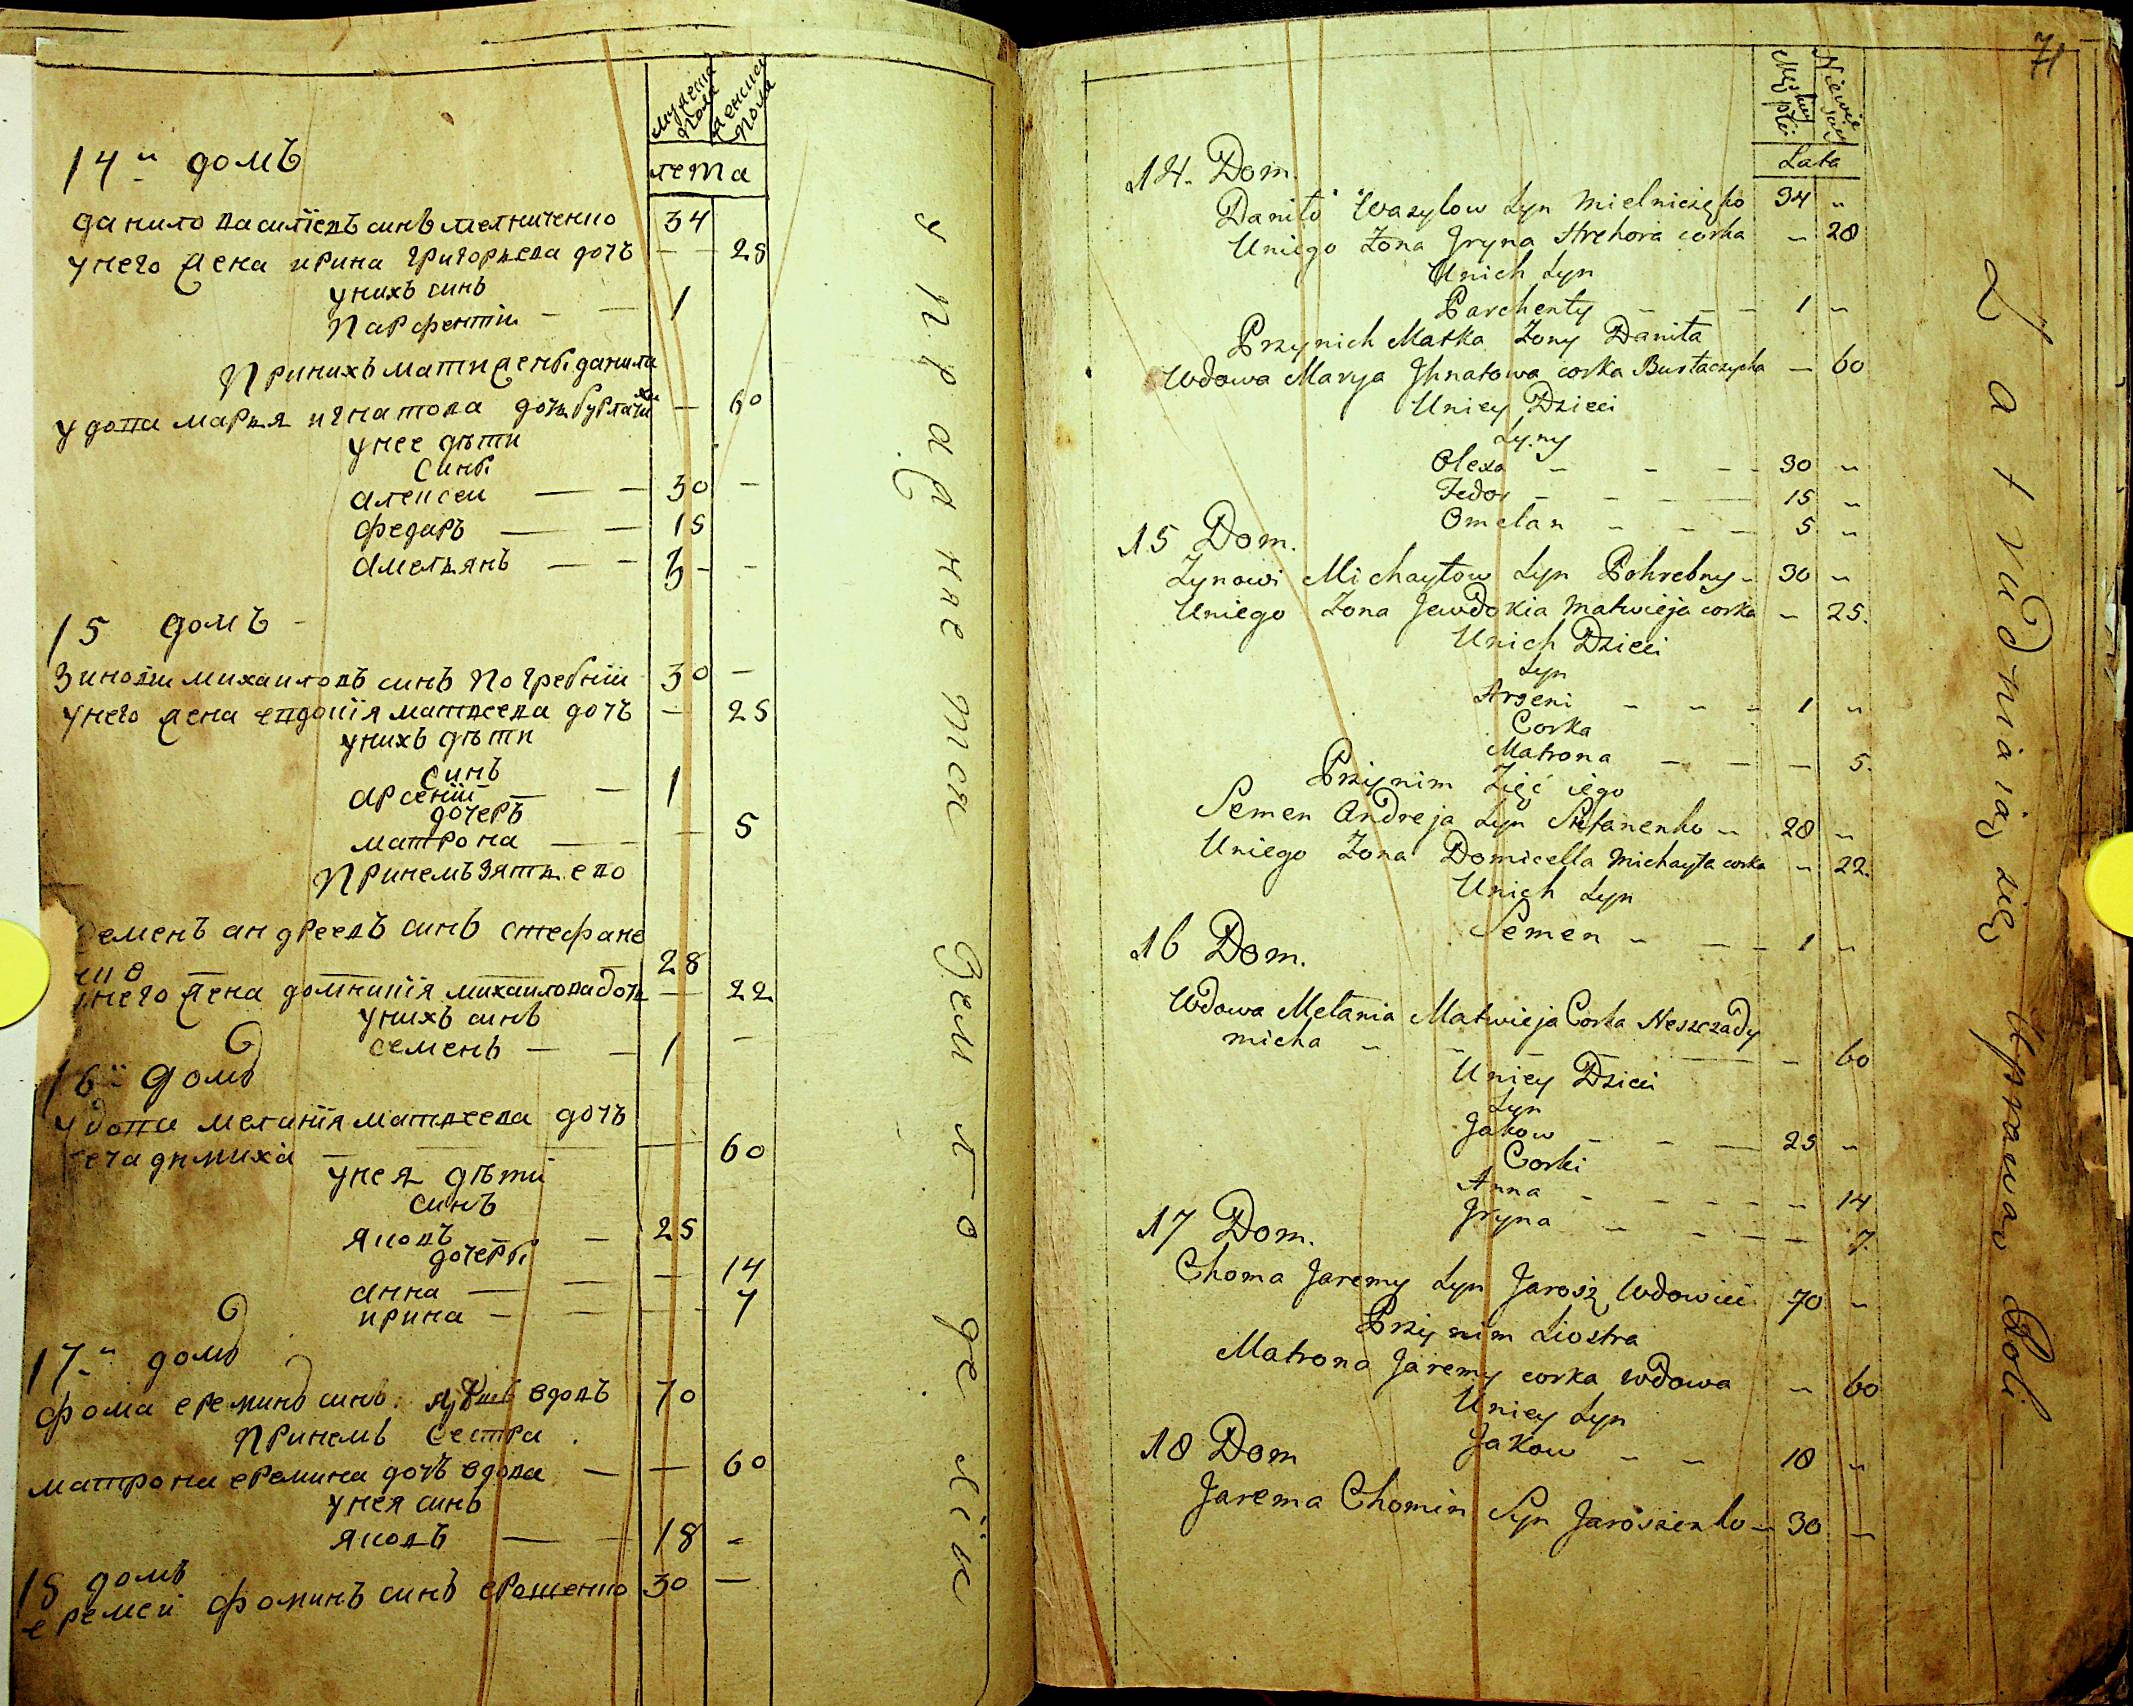 мужеска пола
женска пола
лета
14й домъ
данило василіевъ синъ мелниченко 34
у него жена ирина григорьева дочъ — 28
у нихъ синъ
парфентіи — — 1
При нихъ мати жены данили
удова марья игнатова дочь бурлачиха — 60
у нее дѣти
сины
алексеи — — 30 —
федаръ — — 15
амельянъ — — 5 — —
15 домъ
Зиновіи михаиловъ синъ Погребніи 30 —
у него жена евдокія матвеева дочъ — 25
у нихъ дѣти
синъ
арсеніи — — 1
дочеръ
матрона — — — 5
При немъ зять его
Семенъ андреевъ синъ стефане
нко — — — 28
у него жена домникія михаилова дочь — 22
у нихъ синъ
семенъ — — 1 —
16й домъ
удова меланія матвеева дочъ
нещадимиха — — — 60
у нея дѣти
синъ
яковъ — 25
дочеры
анна — — — 14
ирина — — — 7
17й домъ
фома ереминъ синъ вдовъ 70
При немъ сестра
матрона еремина дочъ вдова — — 60
у нея синъ
яковъ — — 18 -
18 домъ
еремей фоминъ синъ ерошенко 30 —
упражняетса Землоделiи
71
Męskiey płci
Niewie
Lata
14. Dom.
Daniło Wasylow Syn Mielniczęko 34 "
Uniego Zona Jryna Hrehora corka — 28
Unich Syn
Parchenty - - - 1 "
Przynich Matka Zony Daniła
Wdowa Marya Jhnatowa corka Burłaczycha — 60
Uniey Dzieci
Syny
Olexa - - - 30 "
Fedor - - - 15 "
Omelan - - - 5 "
15 Dom.
Zynowi Michayłow Syn Pohrebny - 30 "
Uniego Zona Jewdokia Matwieja corka - 25.
Unich Dzieci
Syn
Arseni - - - 1 "
Corka
Matrona - - - 5.
Przynim Zięć iego
Semen Andreja Syn Stefanenko - 28 "
Uniego Zona Domicella Michayła corka - 22.
Unich Syn
Semen - - - 1 "
16 Dom.
Wdowa Melania Matwieja Corka Neszczady
micha - - - 60
Uniey Dzieci
Syn
Jakow - - - 25 "
Corki
Anna - - - - 14
Jryna - - - - 7.
17 Dom.
Choma Jaremy Syn Jarosz Wdowiec 70 "
Przynim Siostra
Matrona Jaremy corka wdowa - 60
Uniey Syn
Jakow - - 18 "
18 Dom
Jarema Chomin Syn Jaroszenko - 30 —
Zatrudniaią się Uprawą Roli —